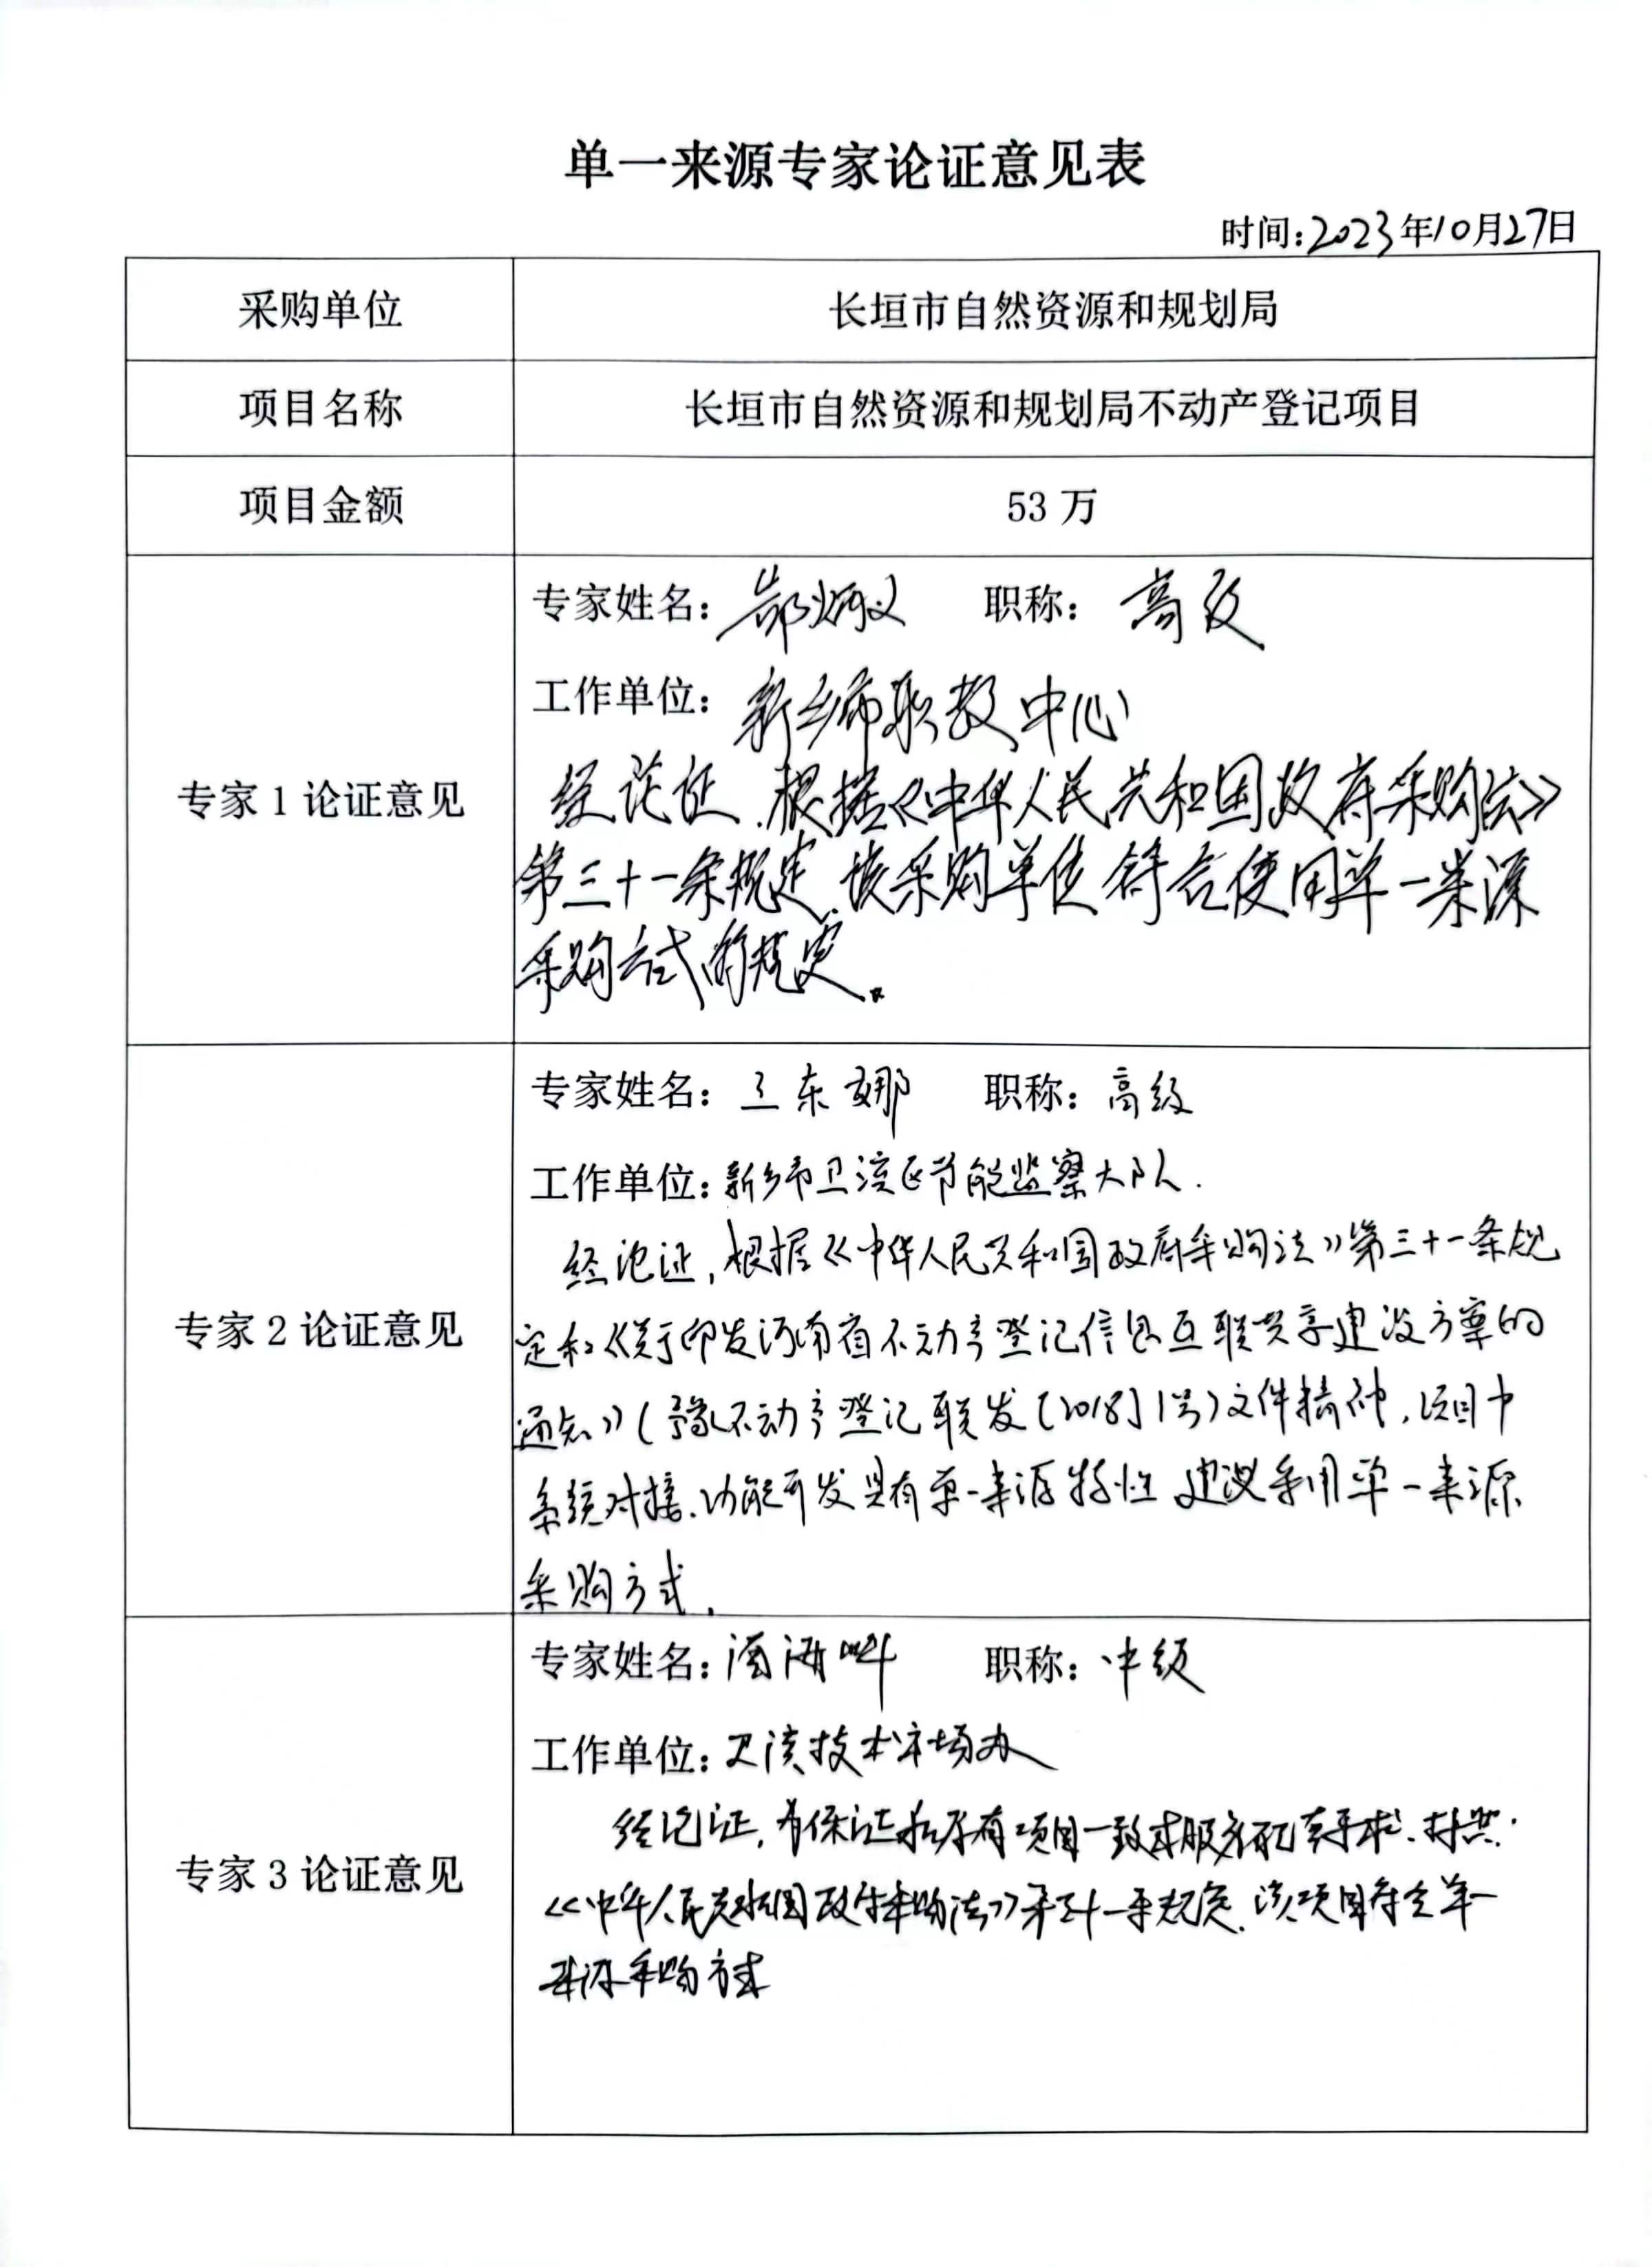 单一来源专家论证意见表
时间：2023年10月27日
采购单位
长垣市自然资源和规划局
项目名称
长垣市自然资源和规划局不动产登记项目
项目金额
53 万
专家 1 论证意见
专家姓名： 职称：高级
工作单位：新乡市职教中心
经论证，根据《中华人民共和国政府采购法》
第三十一条规定，该采购单位符合使用单一来源
采购方式的规定。
专家 2 论证意见
专家姓名：王东娜 职称：高级
工作单位：新乡市卫滨区节能监察大队.
经论证，根据《中华人民共和国政府采购法》第三十一条规
定和《关于印发河南省不动产登记信息互联共享建设方案的
通知》（豫不动产登记联发〔2018〕1号）文件精神，项目中
系统对接、功能开发具有单一来源特性 建议采用单一来源
采购方式.
专家 3 论证意见
专家姓名： 职称：中级
工作单位：卫滨技术市场办
经论证，为保证和原有项目一致或服务配套要求，
《中华人民共和国政府采购法》第三十一条规定，该项目符合单一
来源采购方式